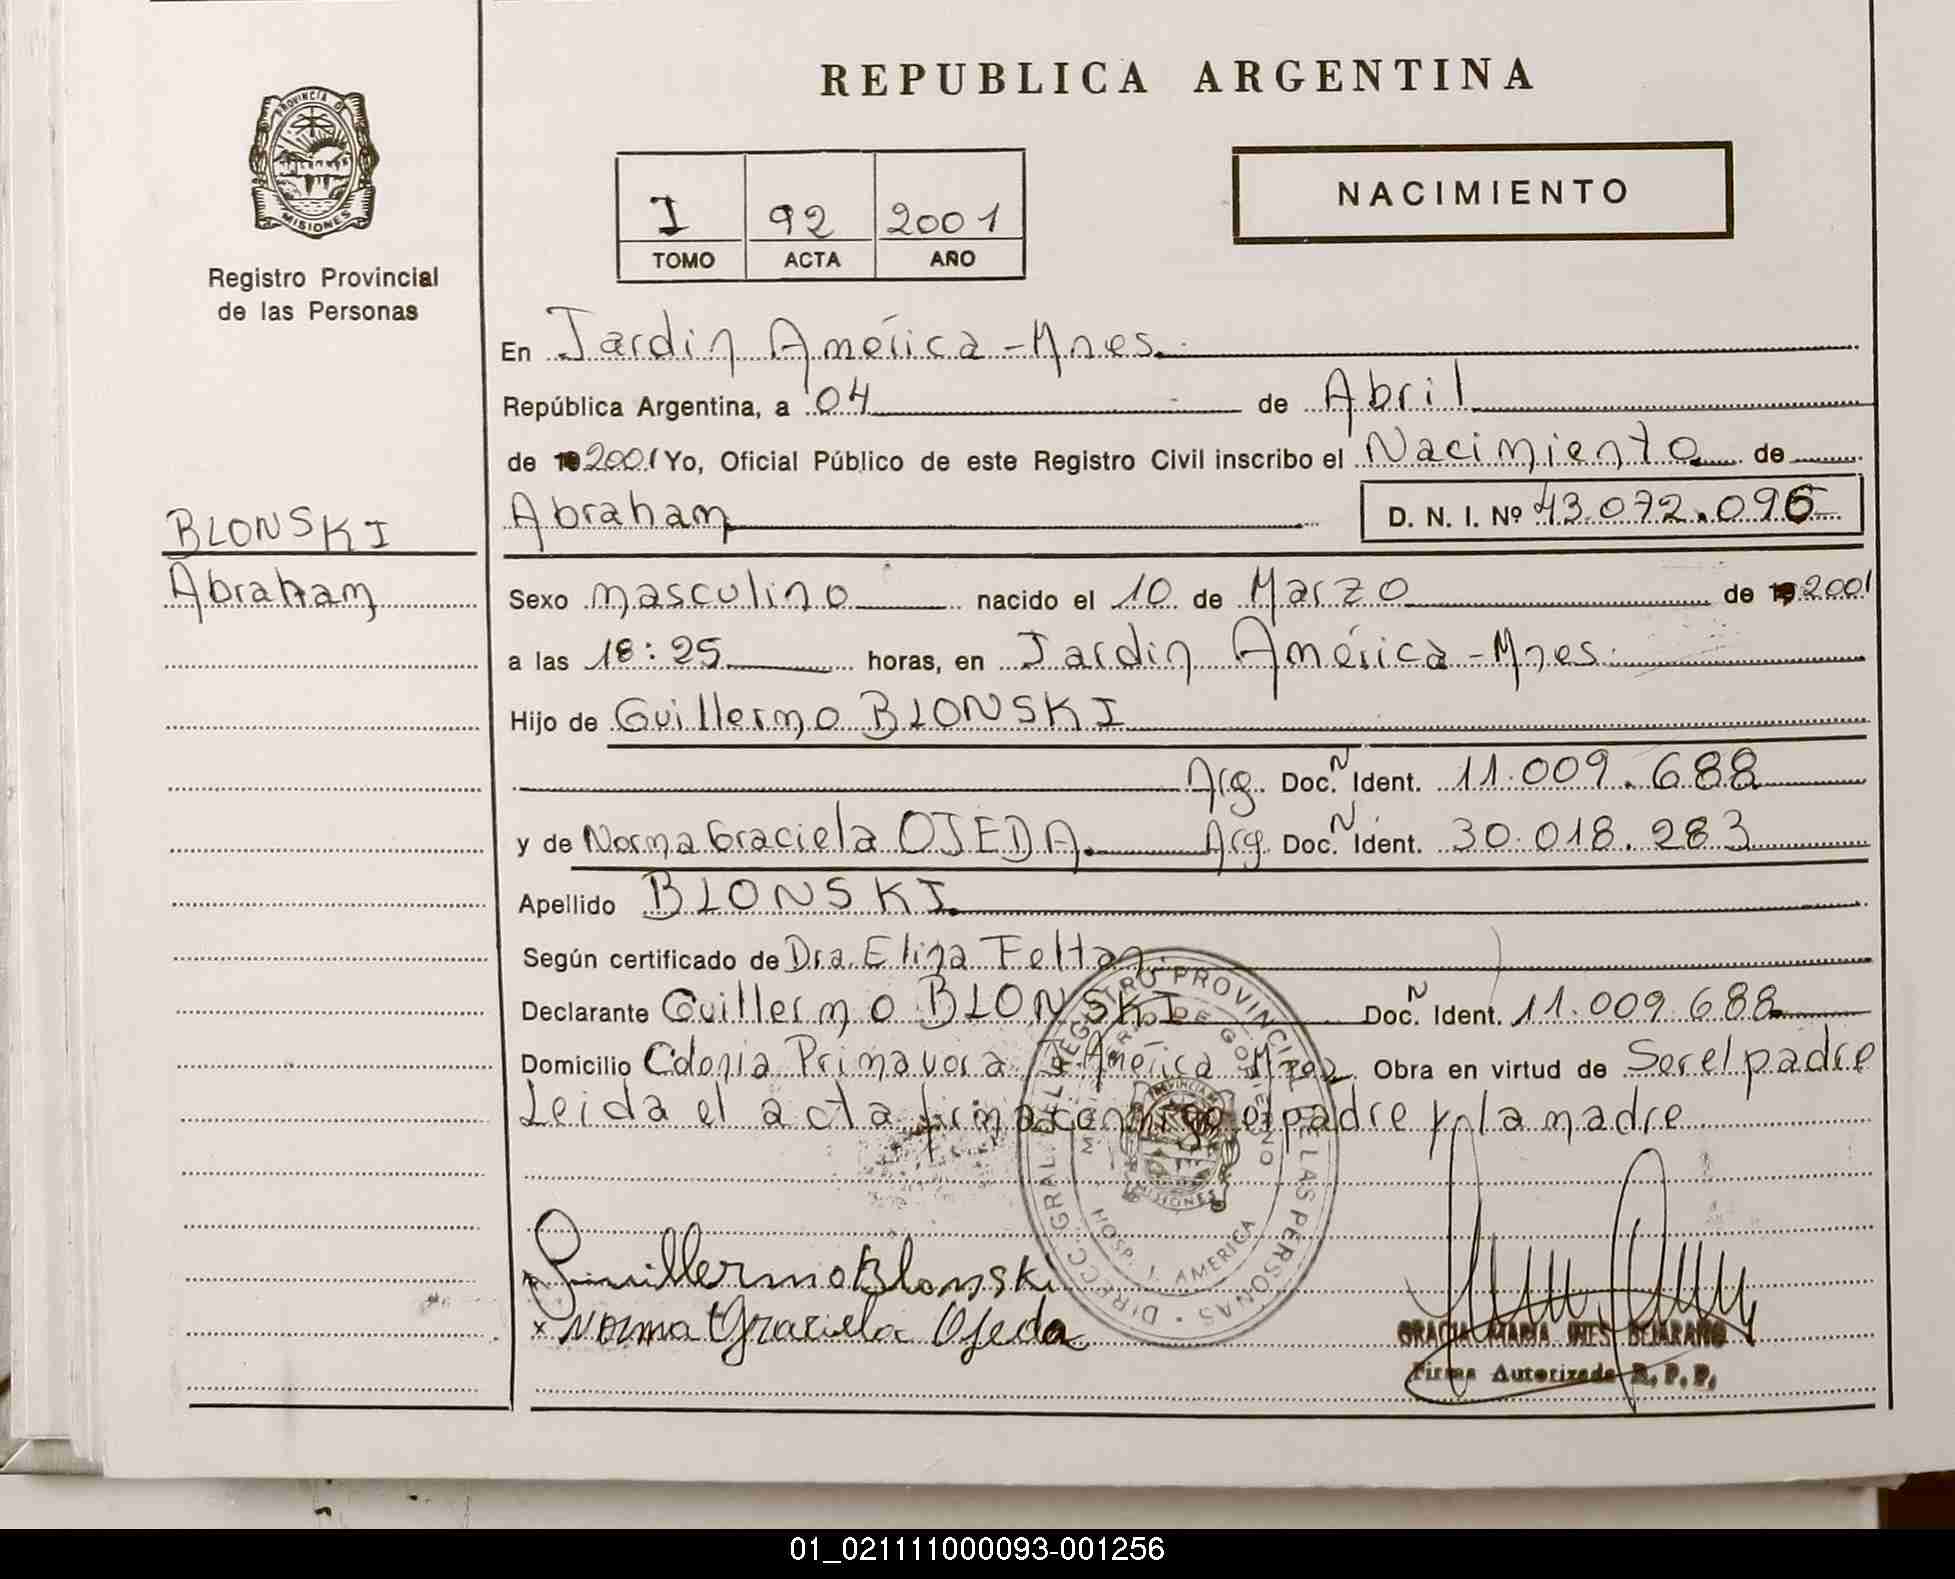 REPUBLICA ARGENTINA
PROVINCIA DE
MISIONES
Registro Provincial
de las Personas
I 92 2001
TOMO ACTA AÑO
NACIMIENTO
En Jardin América - Mnes.
República Argentina, a 04 de Abril
de 19 2001 Yo, Oficial Público de este Registro Civil inscribo el Nacimiento de
Abraham D. N. I. Nº 43.072.096
BLONSKI
Abraham
Sexo masculino nacido el 10 de Marzo de 19 2001
a las 18:25 horas, en Jardin América - Mnes.
Hijo de Guillermo BLONSKI
Arg. Doc. N Ident. 11.009.688
y de Norma Graciela OJEDA. Arg. Doc. N Ident. 30.018.283
Apellido BLONSKI
Según certificado de Dra. Elina Feltan
Declarante Guillermo BLONSKI Doc. N Ident. 11.009.688
Domicilio Colonia Primavera J. América Mnes Obra en virtud de Ser el padre
Leida el acta firma conmigo el padre y la madre
DIRECC. GRAL. DEL REGISTRO PROVINCIAL DE LAS PERSONAS
MINISTERIO DE GOBIERNO
HOSP. J. AMERICA
PROVINCIA
MISIONES
Guillermo Blonski
x Norma Graciela Ojeda
GRACIA MARIA INES BEJARANO
Firma Autorizada R. P. P.
01_021111000093-001256